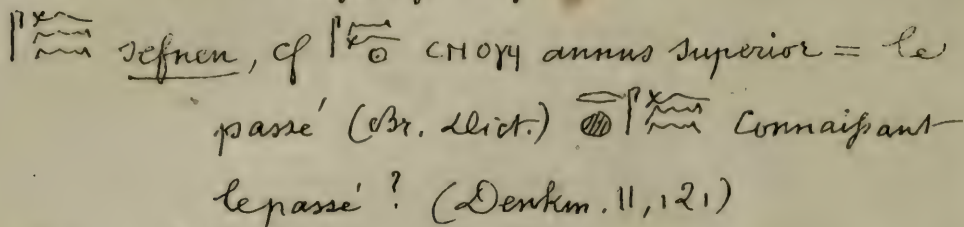 𓋴𓆑𓈖𓈖 sefnen, cf 𓋴𓆑𓈖𓇳 ⲥⲛⲟⲩϥ annus superior = le
passé (Br. Dict.) 𓂋𓐍𓋴𓆑𓈖𓈖 Connaiſsant
le passé ? (Denkm. II, 121)